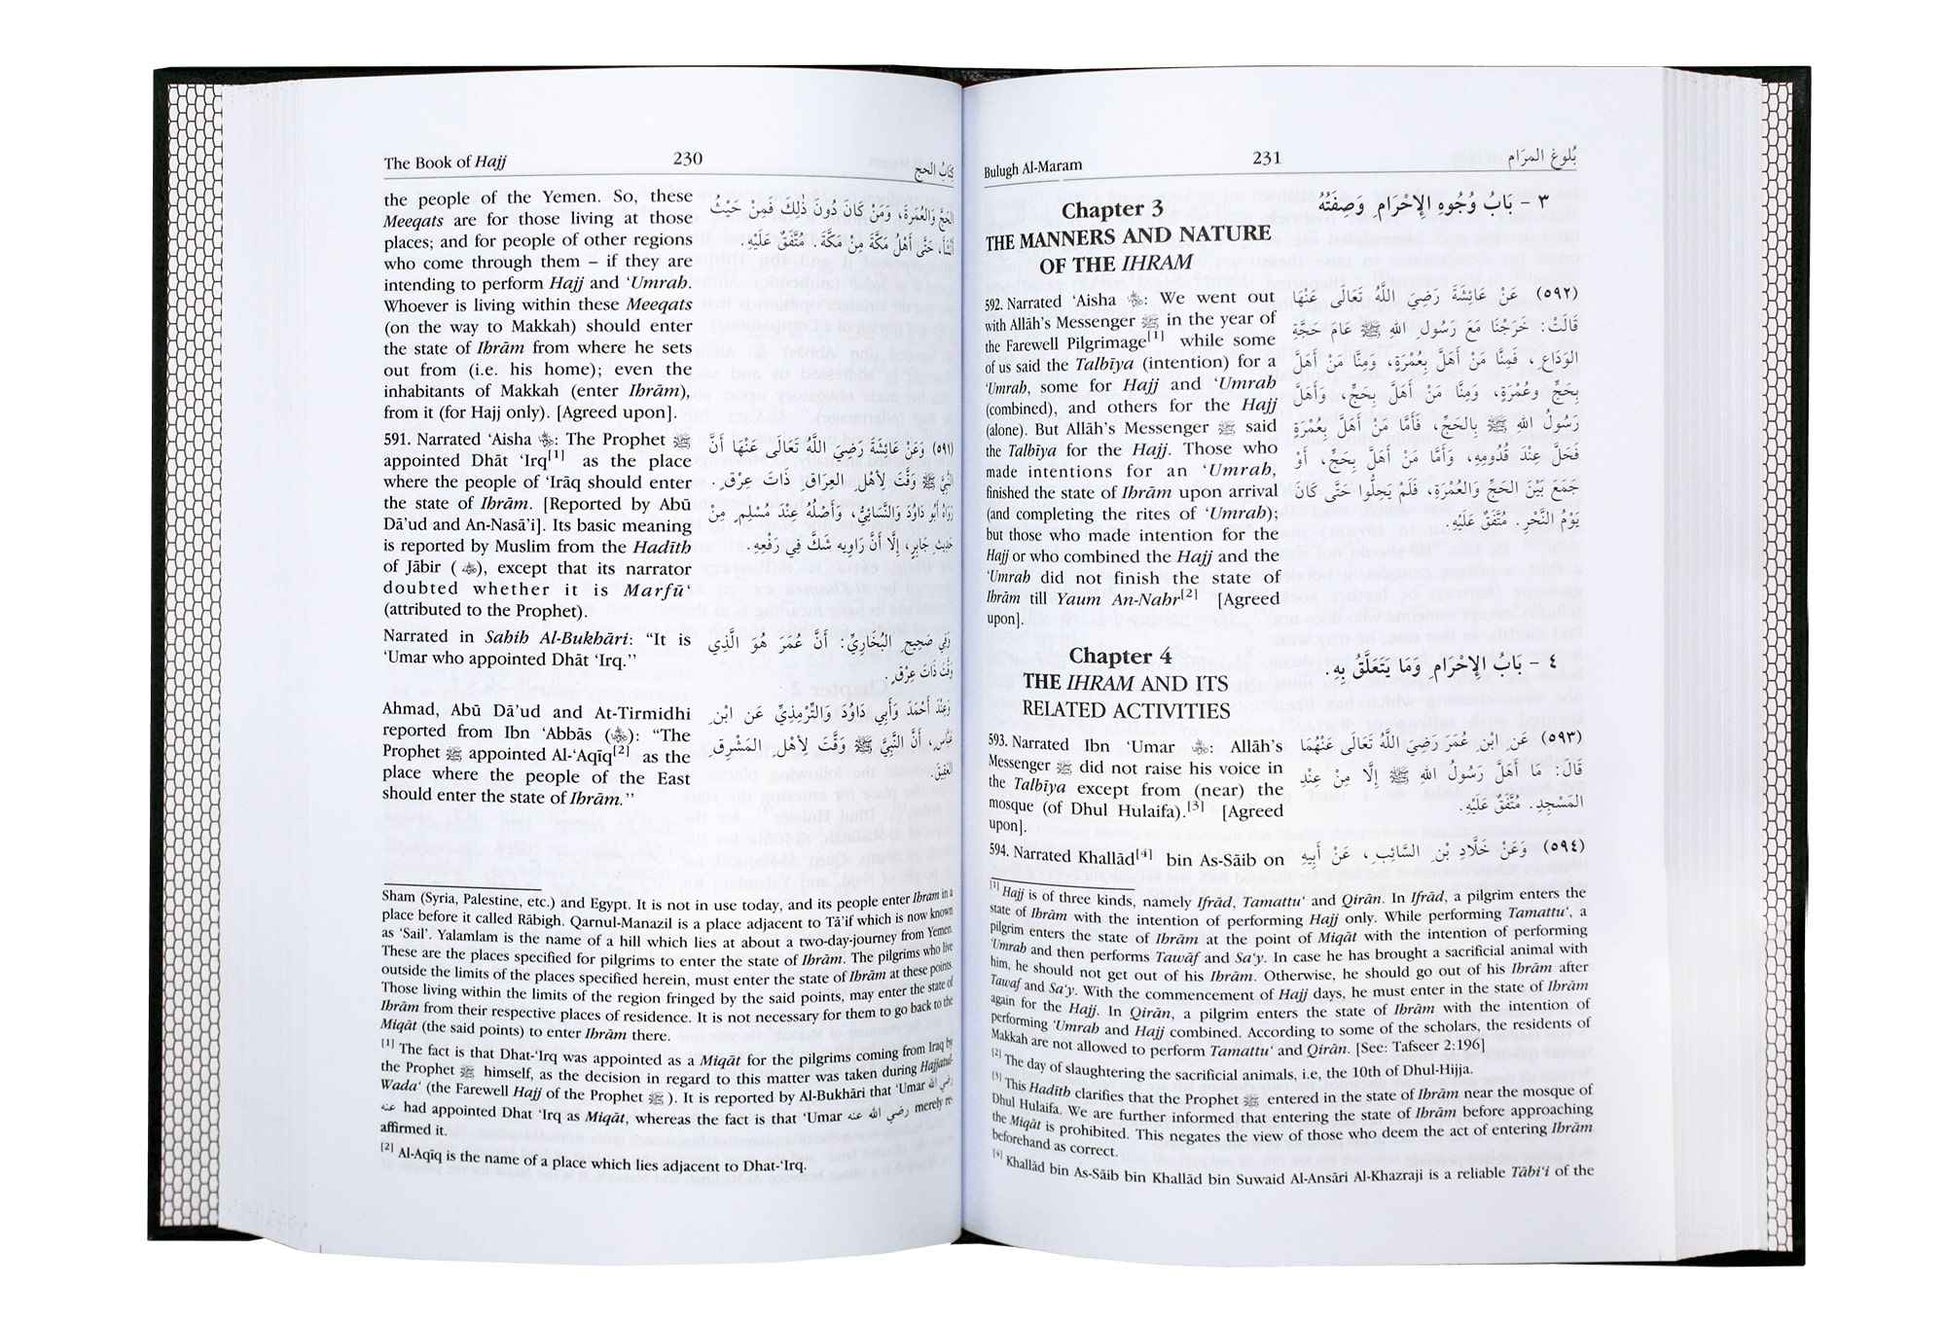 The Book of Hajj
230
كتاب الحج
the people of the Yemen. So, these
Meeqats are for those living at those
places; and for people of other regions
who come through them – if they are
intending to perform Hajj and ‘Umrah.
Whoever is living within these Meeqats
(on the way to Makkah) should enter
the state of Ihrām from where he sets
out from (i.e. his home); even the
inhabitants of Makkah (enter Ihrām),
from it (for Hajj only). [Agreed upon].
الحَجَّ وَالعُمْرَةَ، وَمَنْ كَانَ دُونَ ذٰلِكَ فَمِنْ حَيْثُ
أَنْشَأَ، حَتَّى أَهْلُ مَكَّةَ مِنْ مَكَّةَ. مُتَّفَقٌ عَلَيْهِ.
591. Narrated ‘Aisha: The Prophet ﷺ
appointed Dhāt ‘Irq[1] as the place
where the people of ‘Irāq should enter
the state of Ihrām. [Reported by Abū
Dā’ud and An-Nasā’i]. Its basic meaning
is reported by Muslim from the Hadīth
of Jābir ( ), except that its narrator
doubted whether it is Marfū‘
(attributed to the Prophet).
(٥٩١) وَعَنْ عَائِشَةَ رَضِيَ اللَّهُ تَعَالَى عَنْهَا أَنَّ
النَّبِيَّ ﷺ وَقَّتَ لِأَهْلِ العِرَاقِ ذَاتَ عِرْقٍ.
رَوَاهُ أَبُو دَاوُدَ وَالنَّسَائِيُّ، وَأَصْلُهُ عِنْدَ مُسْلِمٍ مِنْ
حَدِيثِ جَابِرٍ، إِلَّا أَنَّ رَاوِيَه شَكَّ فِي رَفْعِهِ.
Narrated in Sahih Al-Bukhāri: “It is
‘Umar who appointed Dhāt ‘Irq.”
وَفِي صَحِيحِ البُخَارِيِّ: أَنَّ عُمَرَ هُوَ الَّذِي
وَقَّتَ ذَاتَ عِرْقٍ.
Ahmad, Abū Dā’ud and At-Tirmidhi
reported from Ibn ‘Abbās ( ): “The
Prophet ﷺ appointed Al-‘Aqīq[2] as the
place where the people of the East
should enter the state of Ihrām.”
وَعِنْدَ أَحْمَدَ وَأَبِي دَاوُدَ وَالتِّرْمِذِيِّ عَنِ ابْنِ
عَبَّاسٍ، أَنَّ النَّبِيَّ ﷺ وَقَّتَ لِأَهْلِ المَشْرِقِ
العَقِيقَ.
Sham (Syria, Palestine, etc.) and Egypt. It is not in use today, and its people enter Ihram in a
place before it called Rābigh. Qarnul-Manazil is a place adjacent to Tā’if which is now known
as ‘Sail’. Yalamlam is the name of a hill which lies at about a two-day-journey from Yemen.
These are the places specified for pilgrims to enter the state of Ihrām. The pilgrims who live
outside the limits of the places specified herein, must enter the state of Ihrām at these points.
Those living within the limits of the region fringed by the said points, may enter the state of
Ihrām from their respective places of residence. It is not necessary for them to go back to the
Miqāt (the said points) to enter Ihrām there.
[1] The fact is that Dhat-‘Irq was appointed as a Miqāt for the pilgrims coming from Iraq by
the Prophet ﷺ himself, as the decision in regard to this matter was taken during Hajjatul-
Wada‘ (the Farewell Hajj of the Prophet ﷺ). It is reported by Al-Bukhāri that ‘Umar رضي الله
عنه had appointed Dhat ‘Irq as Miqāt, whereas the fact is that ‘Umar رضي الله عنه merely re-
affirmed it.
[2] Al-Aqīq is the name of a place which lies adjacent to Dhat-‘Irq.
Bulugh Al-Maram
231
بُلوغ المرَام
Chapter 3
THE MANNERS AND NATURE
OF THE IHRAM
٣ - بَابُ وُجُوهِ الإِحْرَامِ وَصِفَتُهُ
592. Narrated ‘Aisha: We went out
with Allāh’s Messenger ﷺ in the year of
the Farewell Pilgrimage[1] while some
of us said the Talbīya (intention) for a
‘Umrah, some for Hajj and ‘Umrah
(combined), and others for the Hajj
(alone). But Allāh’s Messenger ﷺ said
the Talbīya for the Hajj. Those who
made intentions for an ‘Umrah,
finished the state of Ihrām upon arrival
(and completing the rites of ‘Umrah);
but those who made intention for the
Hajj or who combined the Hajj and the
‘Umrah did not finish the state of
Ihrām till Yaum An-Nahr[2] [Agreed
upon].
(٥٩٢) عَنْ عَائِشَةَ رَضِيَ اللَّهُ تَعَالَى عَنْهَا
قَالَتْ: خَرَجْنَا مَعَ رَسُولِ اللهِ ﷺ عَامَ حَجَّةِ
الوَدَاعِ، فَمِنَّا مَنْ أَهَلَّ بِعُمْرَةٍ، وَمِنَّا مَنْ أَهَلَّ
بِحَجٍّ وعُمْرَةٍ، وَمِنَّا مَنْ أَهَلَّ بِحَجٍّ، وَأَهَلَّ
رَسُولُ اللهِ ﷺ بِالحَجِّ، فَأَمَّا مَنْ أَهَلَّ بِعُمْرَةٍ
فَحَلَّ عِنْدَ قُدُومِهِ، وَأَمَّا مَنْ أَهَلَّ بِحَجٍّ، أَوْ
جَمَعَ بَيْنَ الحَجِّ وَالعُمْرَةِ، فَلَمْ يَحِلُّوا حَتَّى كَانَ
يَوْمُ النَّحْرِ. مُتَّفَقٌ عَلَيْهِ.
Chapter 4
THE IHRAM AND ITS
RELATED ACTIVITIES
٤ - بَابُ الإِحْرَامِ وَمَا يَتَعَلَّقُ بِهِ.
593. Narrated Ibn ‘Umar: Allāh’s
Messenger ﷺ did not raise his voice in
the Talbīya except from (near) the
mosque (of Dhul Hulaifa).[3] [Agreed
upon].
(٥٩٣) عَنِ ابْنِ عُمَرَ رَضِيَ اللَّهُ تَعَالَى عَنْهُمَا
قَالَ: مَا أَهَلَّ رَسُولُ اللهِ ﷺ إِلَّا مِنْ عِنْدِ
المَسْجِدِ. مُتَّفَقٌ عَلَيْهِ.
594. Narrated Khallād[4] bin As-Sāib on
(٥٩٤) وَعَنْ خَلَّادِ بْنِ السَّائِبِ، عَنْ أَبِيهِ
[1] Hajj is of three kinds, namely Ifrād, Tamattu‘ and Qirān. In Ifrād, a pilgrim enters the
state of Ihrām with the intention of performing Hajj only. While performing Tamattu‘, a
pilgrim enters the state of Ihrām at the point of Miqāt with the intention of performing
‘Umrah and then performs Tawāf and Sa‘y. In case he has brought a sacrificial animal with
him, he should not get out of his Ihrām. Otherwise, he should go out of his Ihrām after
Tawaf and Sa‘y. With the commencement of Hajj days, he must enter in the state of Ihrām
again for the Hajj. In Qirān, a pilgrim enters the state of Ihrām with the intention of
performing ‘Umrah and Hajj combined. According to some of the scholars, the residents of
Makkah are not allowed to perform Tamattu‘ and Qirān. [See: Tafseer 2:196]
[2] The day of slaughtering the sacrificial animals, i.e, the 10th of Dhul-Hijja.
[3] This Hadīth clarifies that the Prophet ﷺ entered in the state of Ihrām near the mosque of
Dhul Hulaifa. We are further informed that entering the state of Ihrām before approaching
the Miqāt is prohibited. This negates the view of those who deem the act of entering Ihrām
beforehand as correct.
[4] Khallād bin As-Sāib bin Khallād bin Suwaid Al-Ansāri Al-Khazraji is a reliable Tābi‘i of the